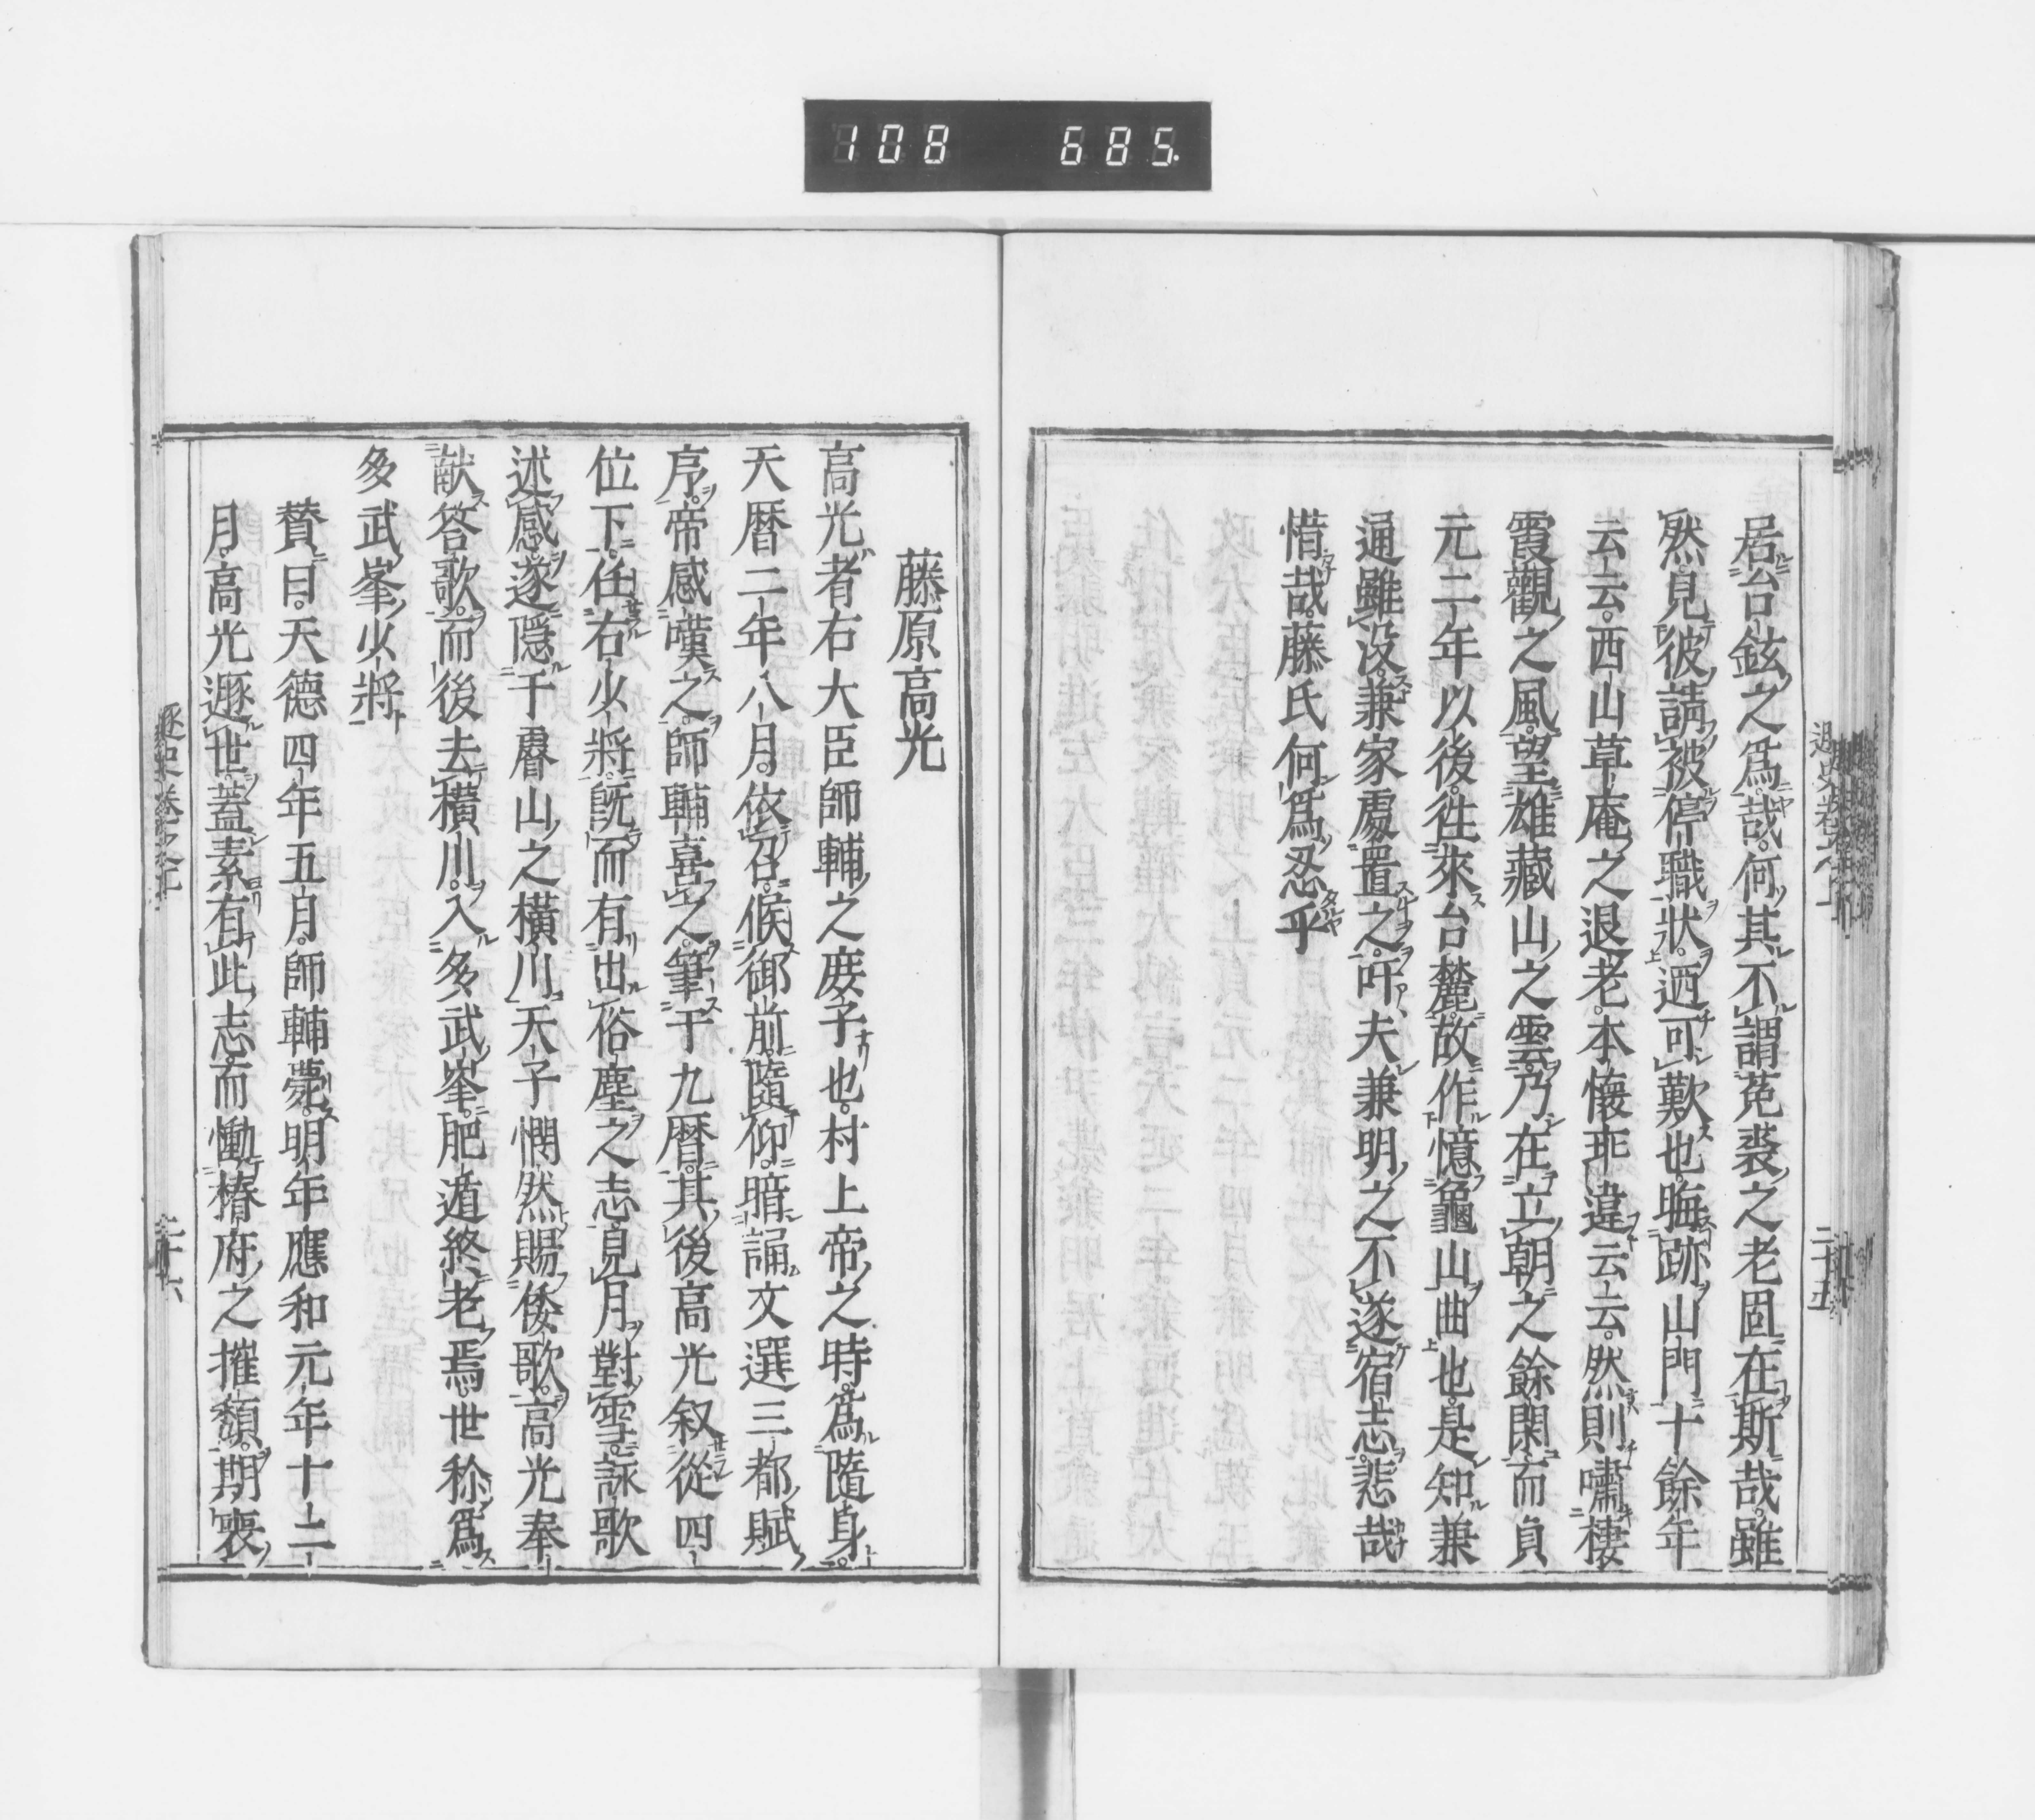 108 685.
居台鉉之爲哉。何其不謂菟裘之老固在斯哉。雖
然見彼請被停職狀。迺可歎也。晦跡山門十餘年
云云。西山草庵之退老。本懷乖違云云。然則嘯棲
霞觀之風。望雄藏山之雲。乃在立朝之餘閑。而貞
元二年以後。往來台麓。故作憶龜山曲也。是知兼
通雖沒。兼家處置之。吁夫兼明之不遂宿志。悲哉
惜哉。藤氏何爲忍乎
遯史卷之上
二十五
藤原高光
高光者右大臣師輔之庶子也。村上帝之時。爲隨身。
天曆二年八月。依召。候御前。隨仰。暗誦文選三都賦
序。帝感嘆之。師輔喜之。筆于九曆。其後高光叙從四
位下。任右少將。既而有出俗塵之志。見月對雪。詠歌
述感。遂隱于睿山之橫川。天子憫然賜倭歌。高光奉
献答歌。而後去橫川。入多武峯。肥遁終老焉。世稱爲
多武峯少將
贊曰。天德四年五月。師輔薨。明年應和元年十二
月。高光遯世。蓋素有此志。而慟椿府之摧頹。期喪